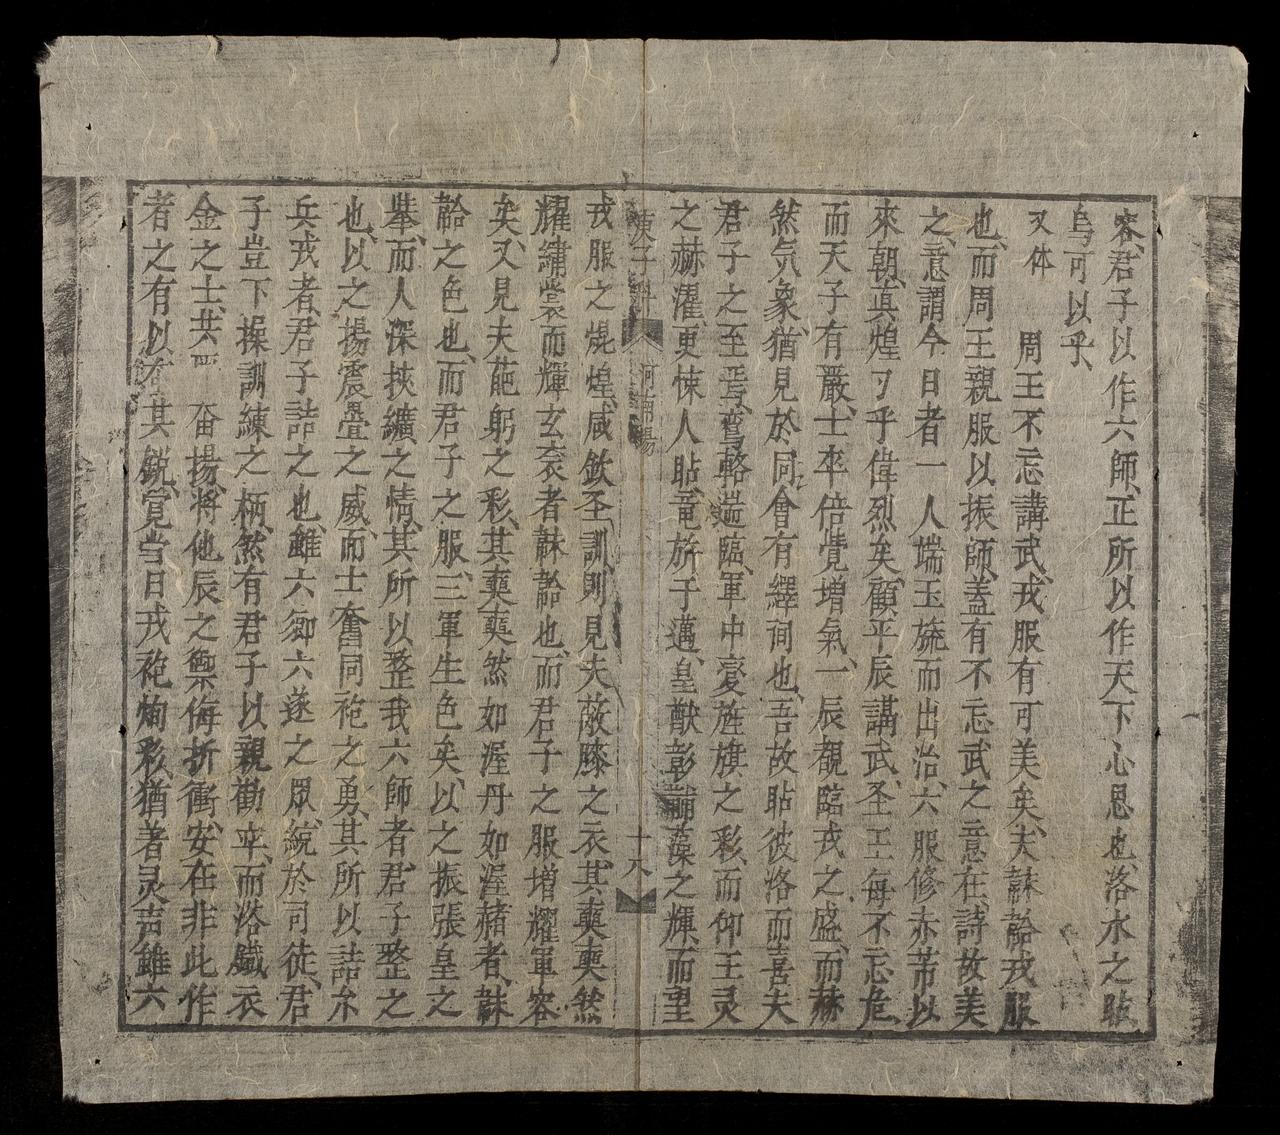 容君子以作六師正所以作天下心思也洛水之貼
烏可以乎
又体　周王不忘講武戎服有可美矣夫韎韐戎服
也而周王親服以振師蓋有不忘武之意在詩故美
之意謂今日者一人端玉旒而出治六服修赤芾以
來朝真煌〻乎偉烈矣顧平辰講武圣王每不忘危
而天子有嚴士卒倍覺增氣一辰覩臨戎之盛而赫
然氣象猶見於同會有繹詞也吾故貼彼洛而喜夫
君子之至焉鸞輅遄臨軍中憂旌旗之彩而仰王灵
之赫濯更悚人貼竜旂于邁皇猷彰黼藻之輝而望
東子科　河南場　十八
戎服之焜煌咸欽圣訓則見夫蔽膝之衣其奭奭然
耀繡裳而輝玄衮者韎韐也而君子之服增耀軍容
矣又見夫葩躬之彩其奭奭然如渥丹如渥赭者韎
韐之色也而君子之服三軍生色矣以之振張皇之
舉而人深挾纊之情其所以整我六師者君子整之
也以之揚震疊之威而士奮同袍之勇其所以詰尔
兵戎者君子詰之也雖六鄉六遂之眾統於司徒君
子豈下操訓練之柄然有君子以親勸率而洛鐵衣
金之士共奮揚將他辰之禦侮折衝安在非此作
者之有以其銳覓当日戎袍炳彩猶著灵声雖六